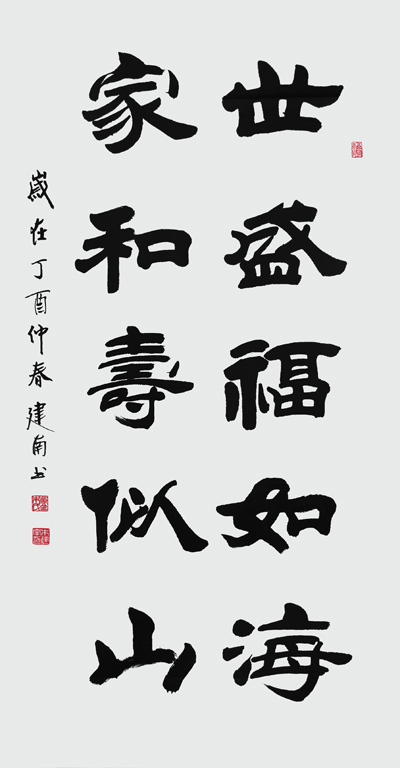 世盛福如海
家和壽似山
歲在丁酉仲春建南书